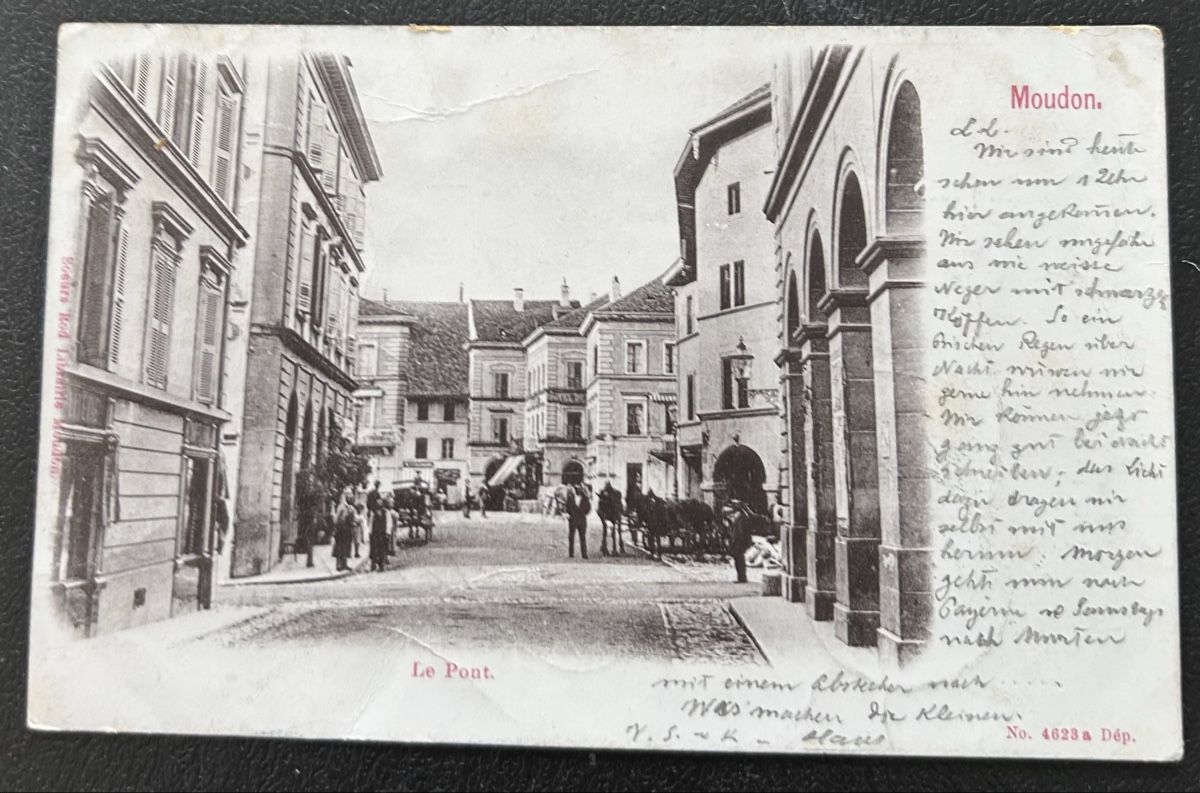 Moudon.
L. L.
Wir sind heute
schon um 12 Uhr
hier angekommen.
Wir sehen ungefähr
aus wie weisse
Neger mit schwarze
Köpfen. So ein
bischen Regen über
Nacht würden wir
gerne hin nehmen.
Wir können jetzt
ganz gut bei Nacht
schreiben; das Licht
dazu tragen wir
selbst mit uns
herum. Morgen
gehts nun nach
Payerne Samstags
nach Murten
mit einem Abstecher nach .....
Was machen die Kleinen.
V. S. u K. Hans
Le Pont.
No. 4623a Dép.
Soeurs Rod Librairie Moudon.